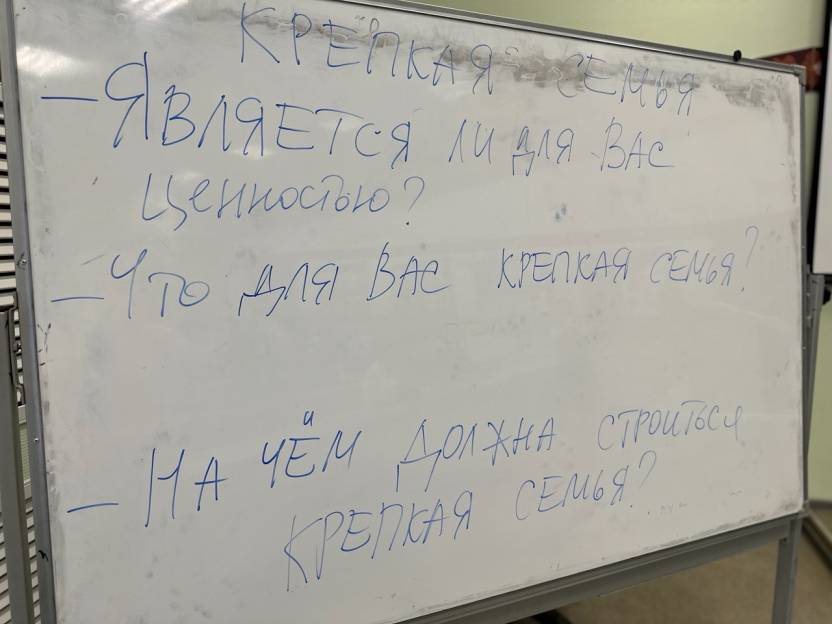 КРЕПКАЯ СЕМЬЯ
– ЯВЛЯЕТСЯ ЛИ ДЛЯ ВАС
ЦЕННОСТЬЮ?
– ЧТО ДЛЯ ВАС КРЕПКАЯ СЕМЬЯ?
– НА ЧЁМ ДОЛЖНА СТРОИТЬСЯ
КРЕПКАЯ СЕМЬЯ?